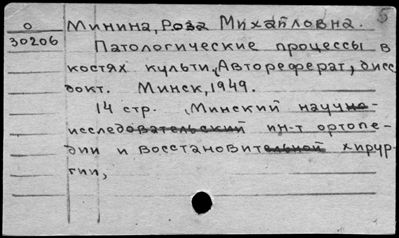 5
О Минина, Роза Михайловна.
30206
Патологические процессы в
костях культи. Автореферат, дисс
докт. Минск, 1949.
14 стр. (Минский научно-
исследовательский ин-т ортопе-
дии и восстановительной хирур-
гии,